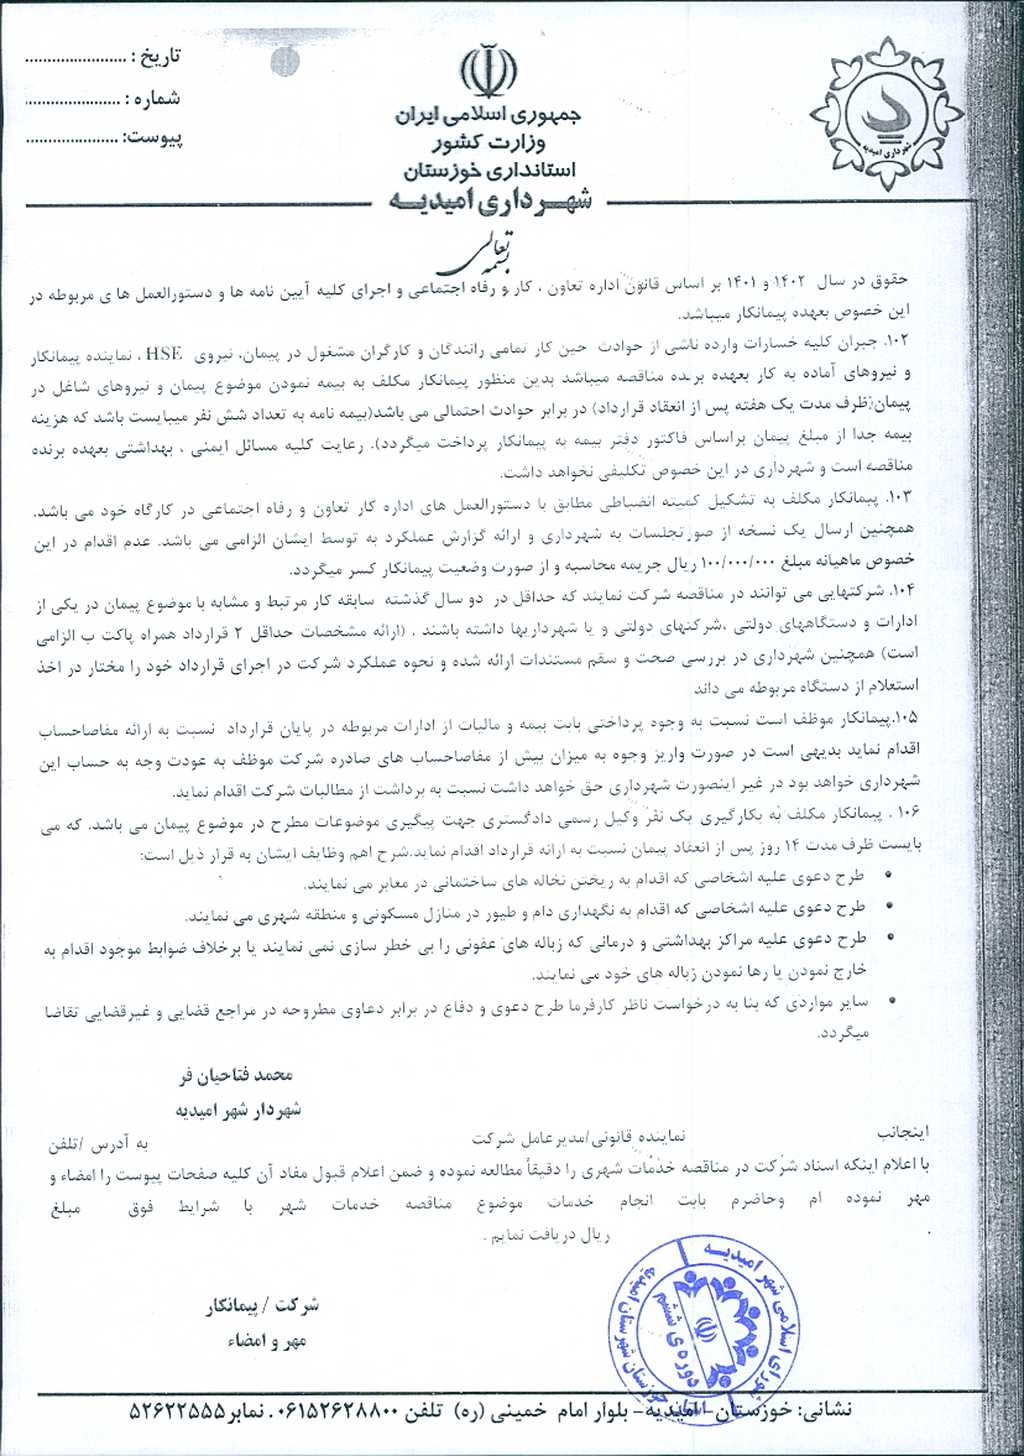 تاریخ : .......................
شماره : .....................
پیوست: .....................
جمهوری اسلامی ایران
وزارت کشور
استانداری خوزستان
شهرداری امیدیه
شهرداری امیدیه
بسمه تعالی
حقوق در سال ۱۴۰۲ و ۱۴۰۱ بر اساس قانون اداره تعاون ، کار و رفاه اجتماعی و اجرای کلیه آیین نامه ها و دستورالعمل ها ی مربوطه در
این خصوص بعهده پیمانکار میباشد.
۱۰۲. جبران کلیه خسارات وارده ناشی از حوادث حین کار تمامی رانندگان و کارگران مشغول در پیمان، نیروی HSE ، نماینده پیمانکار
و نیروهای آماده به کار بعهده برنده مناقصه میباشد بدین منظور پیمانکار مکلف به بیمه نمودن موضوع پیمان و نیروهای شاغل در
پیمان(ظرف مدت یک هفته پس از انعقاد قرارداد) در برابر حوادث احتمالی می باشد(بیمه نامه به تعداد شش نفر میبایست باشد که هزینه
بیمه جدا از مبلغ پیمان براساس فاکتور دفتر بیمه به پیمانکار پرداخت میگردد). رعایت کلیه مسائل ایمنی ، بهداشتی بعهده برنده
مناقصه است و شهرداری در این خصوص تکلیفی نخواهد داشت.
۱۰۳. پیمانکار مکلف به تشکیل کمیته انضباطی مطابق با دستورالعمل های اداره کار تعاون و رفاه اجتماعی در کارگاه خود می باشد.
همچنین ارسال یک نسخه از صورتجلسات به شهرداری و ارائه گزارش عملکرد به توسط ایشان الزامی می باشد. عدم اقدام در این
خصوص ماهیانه مبلغ ۱۰۰/۰۰۰/۰۰۰ ریال جریمه محاسبه و از صورت وضعیت پیمانکار کسر میگردد.
۱۰۴. شرکتهایی می توانند در مناقصه شرکت نمایند که حداقل در دو سال گذشته سابقه کار مرتبط و مشابه با موضوع پیمان در یکی از
ادارات و دستگاههای دولتی ،شرکتهای دولتی و یا شهرداریها داشته باشند . (ارائه مشخصات حداقل ۲ قرارداد همراه پاکت ب الزامی
است) همچنین شهرداری در بررسی صحت و سقم مستندات ارائه شده و نحوه عملکرد شرکت در اجرای قرارداد خود را مختار در اخذ
استعلام از دستگاه مربوطه می داند
۱۰۵.پیمانکار موظف است نسبت به وجوه پرداختی بابت بیمه و مالیات از ادارات مربوطه در پایان قرارداد نسبت به ارائه مفاصاحساب
اقدام نماید بدیهی است در صورت واریز وجوه به میزان بیش از مفاصاحساب های صادره شرکت موظف به عودت وجه به حساب این
شهرداری خواهد بود در غیر اینصورت شهرداری حق خواهد داشت نسبت به برداشت از مطالبات شرکت اقدام نماید.
۱۰۶ . پیمانکار مکلف به بکارگیری یک نفر وکیل رسمی دادگستری جهت پیگیری موضوعات مطرح در موضوع پیمان می باشد. که می
بایست ظرف مدت ۱۴ روز پس از انعقاد پیمان نسبت به ارائه قرارداد اقدام نماید.شرح اهم وظایف ایشان به قرار ذیل است:
• طرح دعوی علیه اشخاصی که اقدام به ریختن نخاله های ساختمانی در معابر می نمایند.
• طرح دعوی علیه اشخاصی که اقدام به نگهداری دام و طیور در منازل مسکونی و منطقه شهری می نمایند.
• طرح دعوی علیه مراکز بهداشتی و درمانی که زباله های عفونی را بی خطر سازی نمی نمایند یا برخلاف ضوابط موجود اقدام به
خارج نمودن یا رها نمودن زباله های خود می نمایند.
• سایر مواردی که بنا به درخواست ناظر کارفرما طرح دعوی و دفاع در برابر دعاوی مطروحه در مراجع قضایی و غیرقضایی تقاضا
میگردد.
محمد فتاحیان فر
شهردار شهر امیدیه
اینجانب نماینده قانونی/مدیرعامل شرکت به آدرس /تلفن
با اعلام اینکه اسناد شرکت در مناقصه خدمات شهری را دقیقاً مطالعه نموده و ضمن اعلام قبول مفاد آن کلیه صفحات پیوست را امضاء و
مهر نموده ام وحاضرم بابت انجام خدمات موضوع مناقصه خدمات شهر با شرایط فوق مبلغ
ریال دریافت نمایم .
شورای اسلامی شهر امیدیه
دوره ی ششم
استان خوزستان شهرستان امیدیه
شرکت / پیمانکار
مهر و امضاء
نشانی: خوزستان- امیدیه- بلوار امام خمینی (ره) تلفن ۰۶۱۵۲۶۲۸۸۰۰. نمابر ۵۲۶۲۲۵۵۵